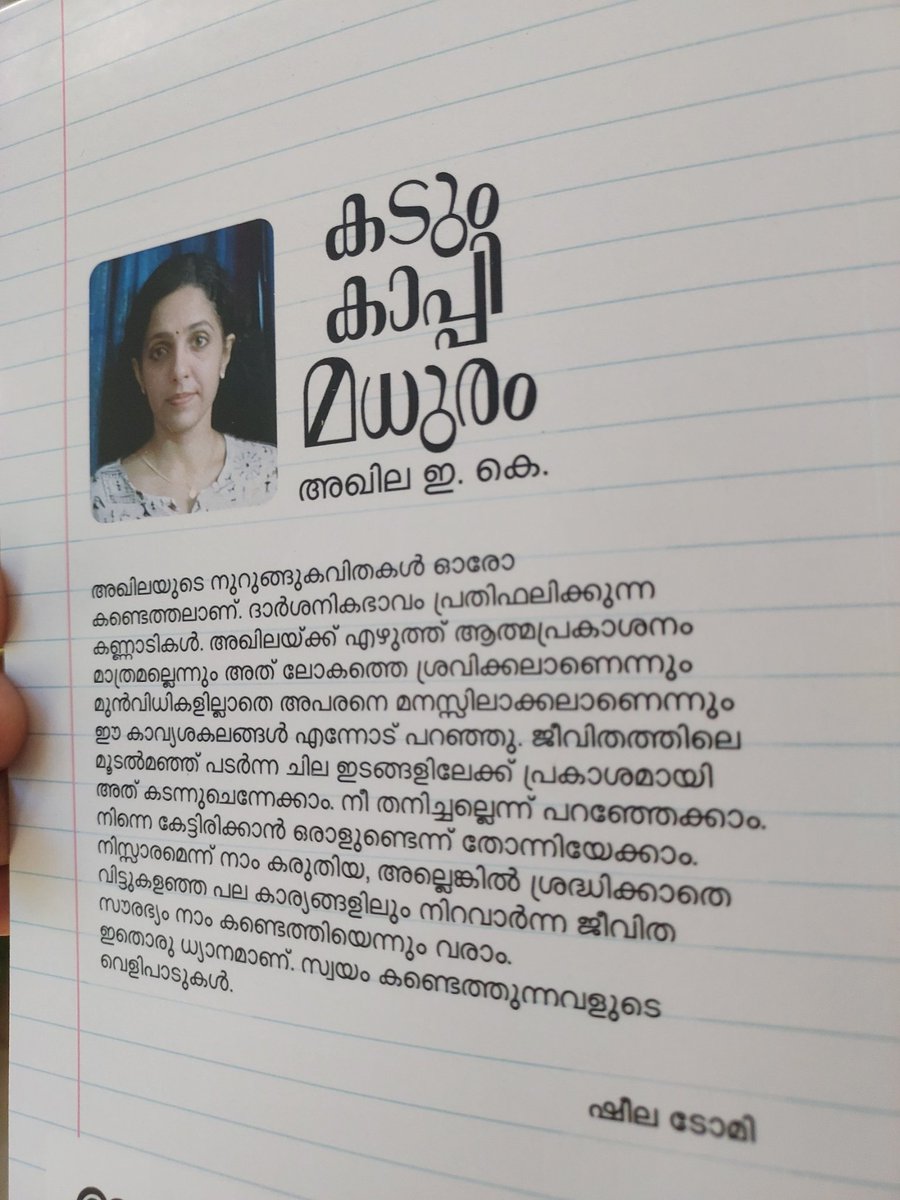 കടും
കാപ്പി
മധുരം
അഖില ഇ. കെ.
അഖിലയുടെ നുറുങ്ങുകവിതകൾ ഓരോ
കണ്ടെത്തലാണ്. ദാർശനികഭാവം പ്രതിഫലിക്കുന്ന
കണ്ണാടികൾ. അഖിലയ്ക്ക് എഴുത്ത് ആത്മപ്രകാശനം
മാത്രമല്ലെന്നും അത് ലോകത്തെ ശ്രവിക്കലാണെന്നും
മുൻവിധികളില്ലാതെ അപരനെ മനസ്സിലാക്കലാണെന്നും
ഈ കാവ്യശകലങ്ങൾ എന്നോട് പറഞ്ഞു. ജീവിതത്തിലെ
മൂടൽമഞ്ഞ് പടർന്ന ചില ഇടങ്ങളിലേക്ക് പ്രകാശമായി
അത് കടന്നുചെന്നേക്കാം. നീ തനിച്ചല്ലെന്ന് പറഞ്ഞേക്കാം.
നിന്നെ കേട്ടിരിക്കാൻ ഒരാളുണ്ടെന്ന് തോന്നിയേക്കാം.
നിസ്സാരമെന്ന് നാം കരുതിയ, അല്ലെങ്കിൽ ശ്രദ്ധിക്കാതെ
വിട്ടുകളഞ്ഞ പല കാര്യങ്ങളിലും നിറവാർന്ന ജീവിത
സൗരഭ്യം നാം കണ്ടെത്തിയെന്നും വരാം.
ഇതൊരു ധ്യാനമാണ്. സ്വയം കണ്ടെത്തുന്നവളുടെ
വെളിപാടുകൾ.
ഷീല ടോമി